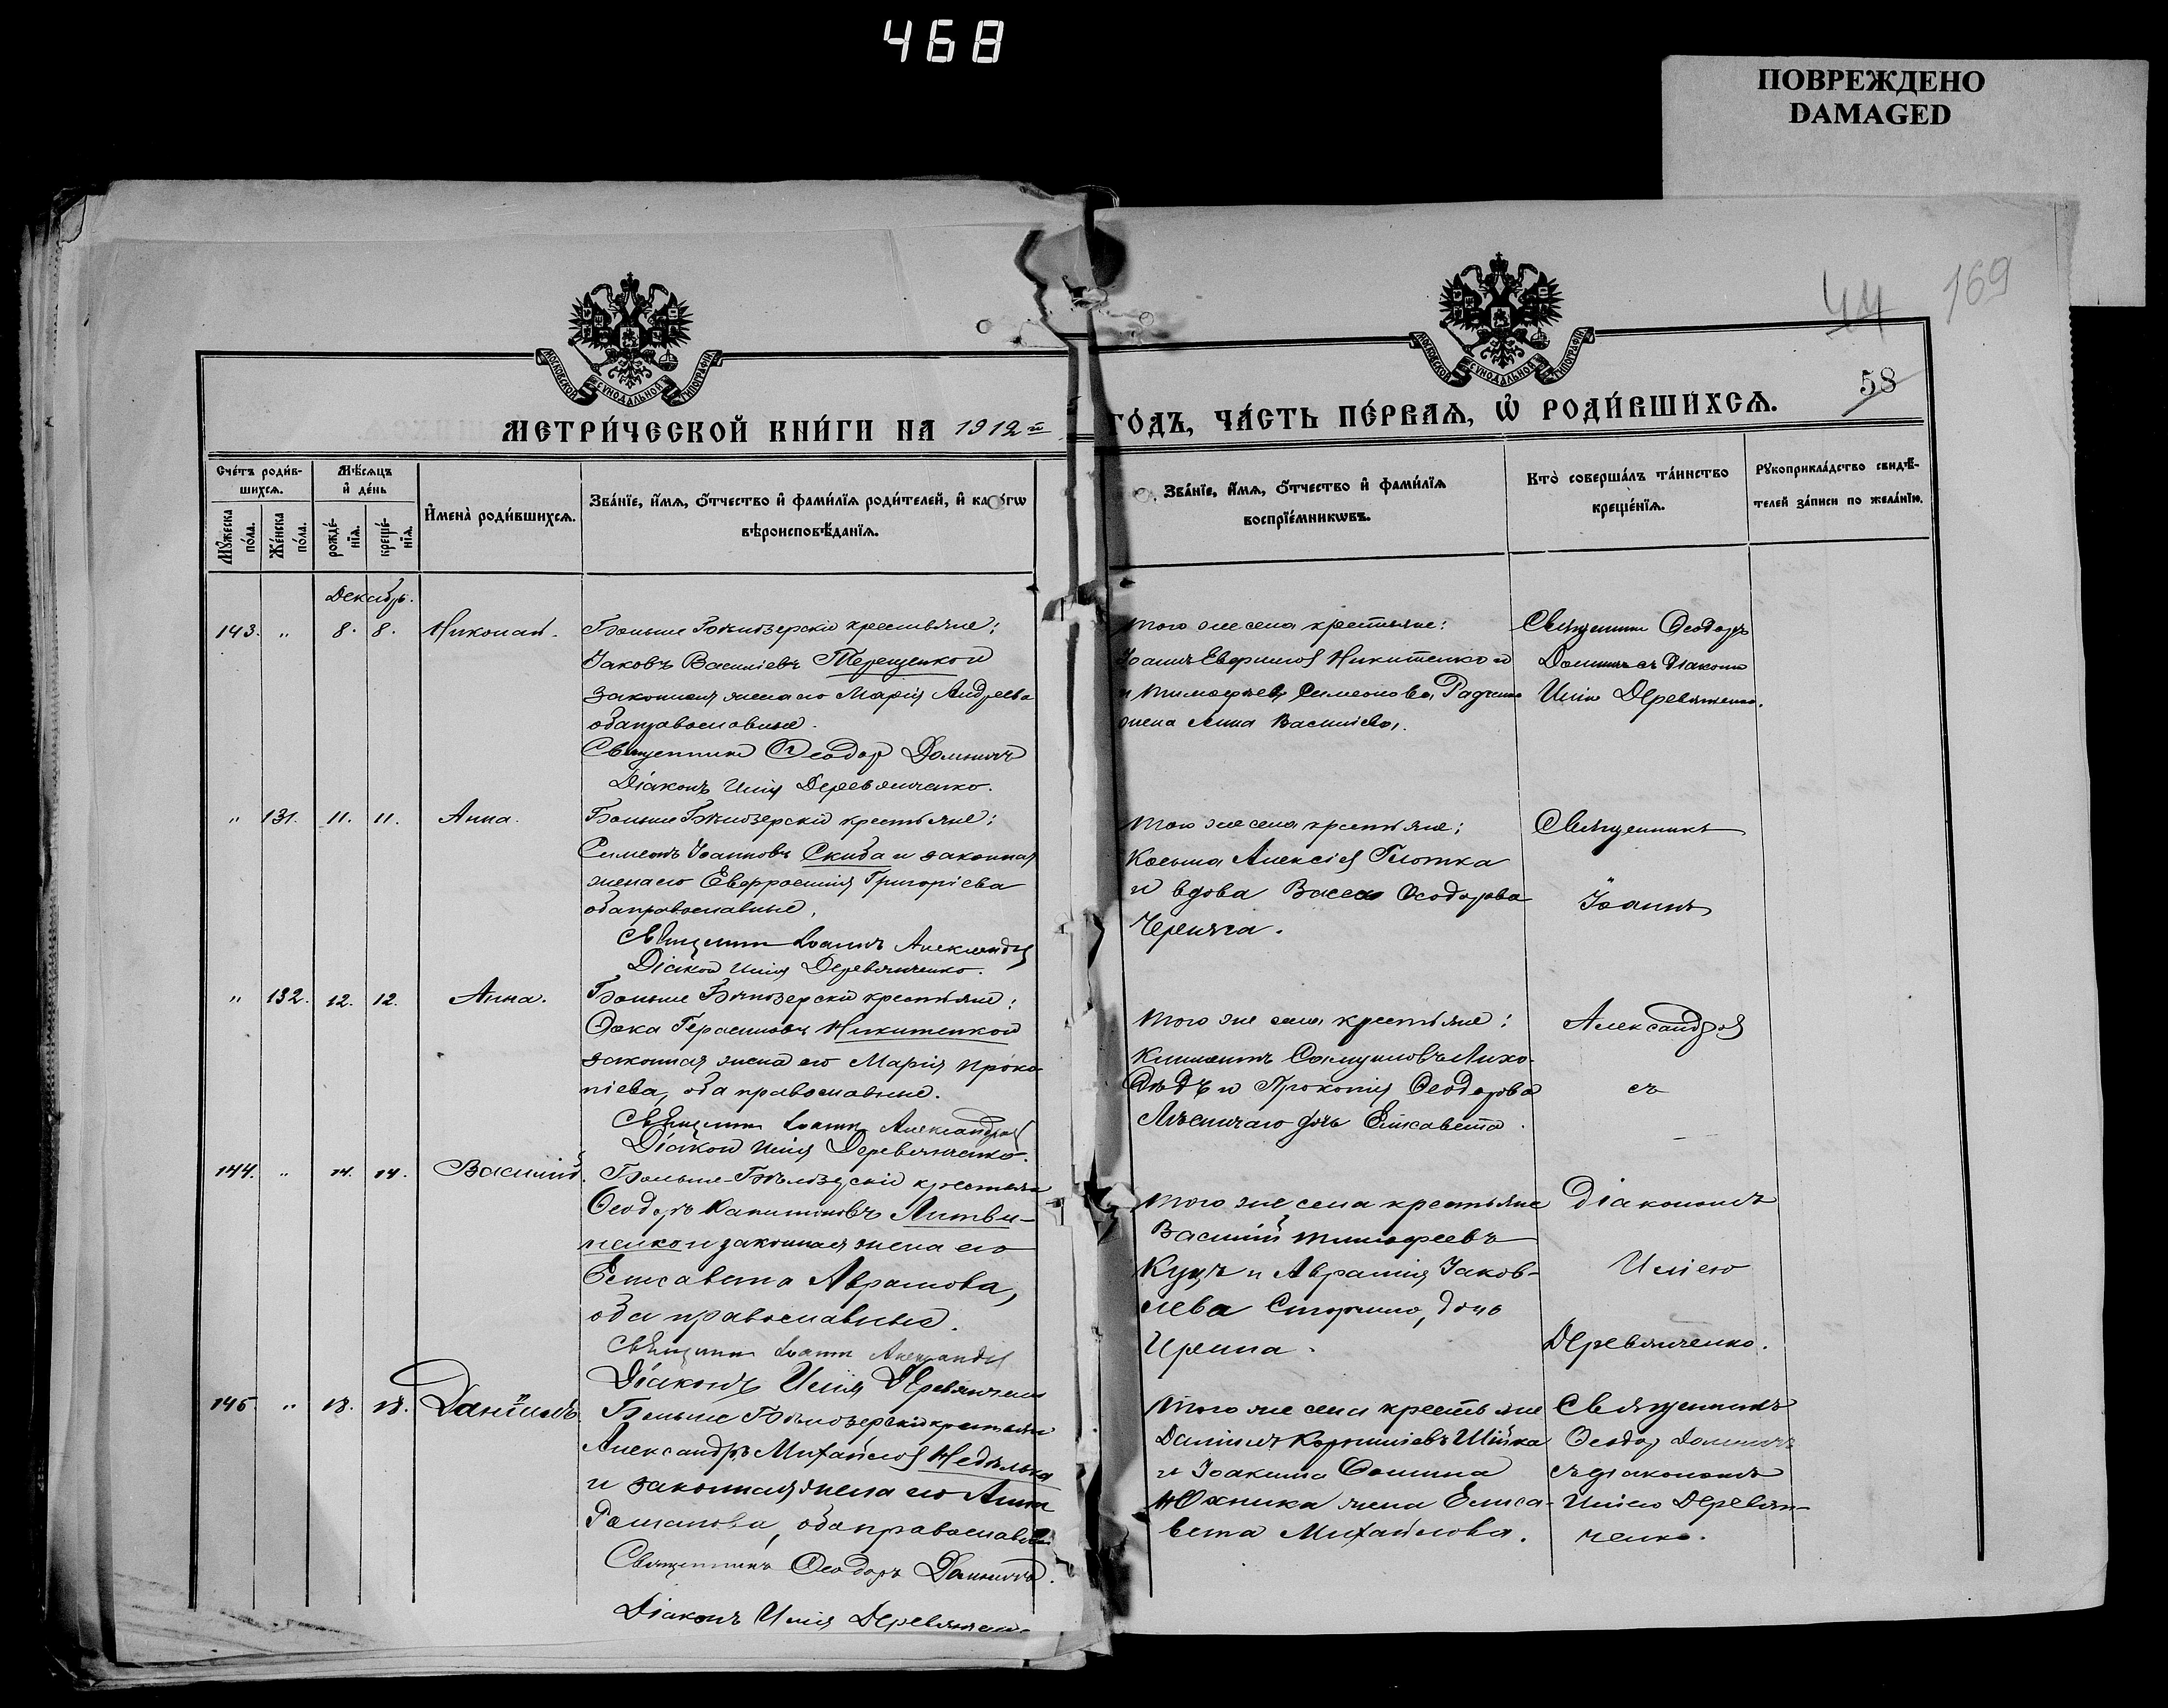 468
ПОВРЕЖДЕНО
DAMAGED
44
169
58
МОСКОВСКОЙ СѴНОДАЛЬНОЙ ТИПОГРАФІИ
МОСКОВСКОЙ СѴНОДАЛЬНОЙ ТИПОГРАФІИ
МЕТРИ́ЧЕСКОЙ КНИ́ГИ НА 1912й ГО́ДЪ, ЧА́СТЬ ПЕ́РВАЯ, Ѡ҆ РОДИ́ВШИХСЯ.
Сче́тъ роди́в-
шихся.
Мѣ́сяцъ
и҆ де́нь
Мꙋ́жеска
по́ла.
Же́нска
по́ла.
рожде́-
нїя.
креще́-
нїя.
И҆мена̀ роди́вшихся.
Зва́нїе, и҆́мя, ѻ҆́тчество и҆ фами́лїя роди́телей, и҆ како́гѡ
вѣроисповѣ́данїя.
Зва́нїе, и҆́мя, ѻ҆́тчество и҆ фами́лїя
воспрїе́мникѡвъ.
Кто̀ соверша́лъ та́инство
креще́нїя.
Рꙋкоприкла́дство свидѣ́-
телей за́писи по жела́нїю.
Декабрь.
143. " 8. 8. Николай.
Больше Бѣлозерскіе крестьяне:
Іаковъ Василіевъ Терещенко и
законная жена его Марія Андреева
оба православные.
Священникъ Ѳеодоръ
Діаконъ Илія Деревянченко.
того же села крестьяне:
Іоаннъ Евфиміев Никитенко и
и Тимофея Симеонова
жена Анна Василіева.
Священникъ Ѳеодоръ
съ діакономъ
Илія Деревянченко.
" 131. 11. 11. Анна.
Больше Бѣлозерскіе крестьяне:
Симеонъ Іоанновъ Скиба и законная
жена его Евфросинія Григоріева
оба православные,
Священникъ Іоаннъ Александров
Діакон Илія Деревянченко.
того же села крестьяне:
Косьма Алексіев Глотка
и вдова Васса Ѳеодорова
Черняга.
Священникъ
Іоаннъ
" 132. 12. 12. Анна.
Больше Бѣлозерскіе крестьяне:
Ѳока Герасимовъ Никитенко и
законная жена его Марія Проко-
піева, оба православные.
Священникъ Іоаннъ Александров
Діакон Илія Деревянченко.
того же села крестьяне:
Климентъ Самуиловъ Лихо-
дѣдъ и Прокопія Ѳеодорова
Лѣсничаго дочь Елисавета.
Александров
съ
144. " 14. 14. Василій.
Больше-Бѣлозерскіе крестьяне
Ѳеодоръ Капитоновъ Литви-
ненко и законная жена его
Елисавета Аврамова,
оба православные.
Священникъ Іоаннъ Александров
Діаконъ Илія Деревянченко
того же села крестьяне
Василій Тимофеевъ
Куцъ и Аврамія Іаков-
лева дочь
Ирина.
Діакономъ
Иліею
Деревянченко.
145. " 18. 18. Даніилъ.
Больше Бѣлозерскіе крестьяне
Александръ Михайлов Недѣлька
и законная жена его Анна
Романова, оба православные
Священникъ Ѳеодоръ
Діаконъ Илія Деревянченко
того же села крестьяне
Даніилъ Корниліевъ Шійка
и Іоакима Ѳомина
Юхника жена Елиса-
вета Михайлова.
Священникъ
Ѳеодор
съ діакономъ
Иліею Деревян-
ченко.